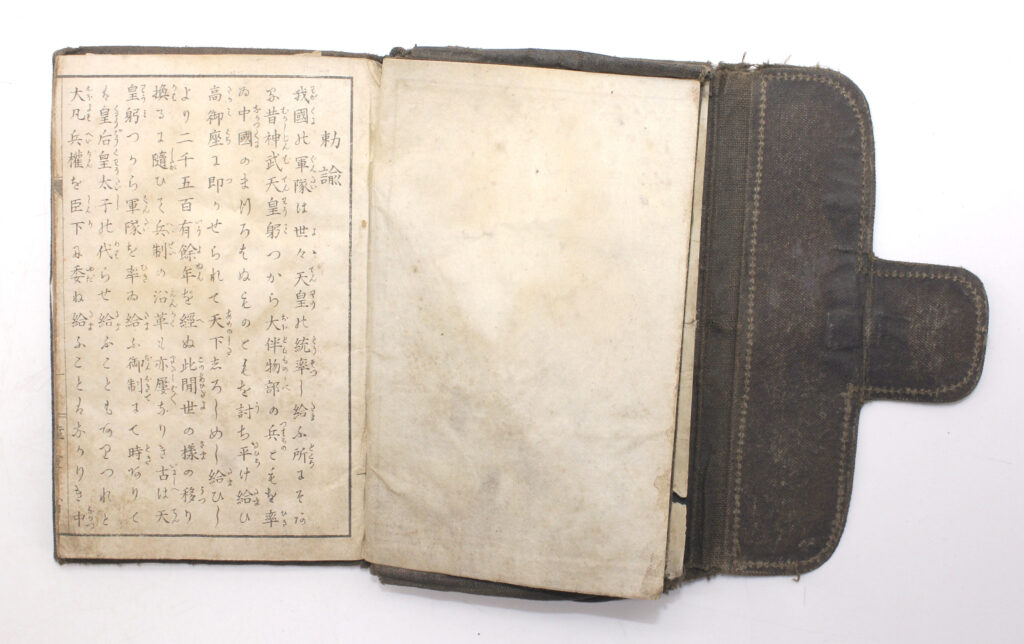 勅諭
我國の軍隊は世々天皇の統率し給ふ所にそあ
る昔神武天皇躬つから大伴物部の兵ともを率
ゐ中國のまつろはぬものともを討ち平け給ひ
高御座に即かせられて天下しろしめし給ひし
より二千五百有餘年を經ぬ此間世の樣の移り
換るに隨ひて兵制の沿革も亦屢なりき古は天
皇躬つから軍隊を率ゐ給ふ御制にて時ありて
は皇后皇太子の代らせ給ふこともありつれと
大凡兵權を臣下に委ね給ふことはなかりき中